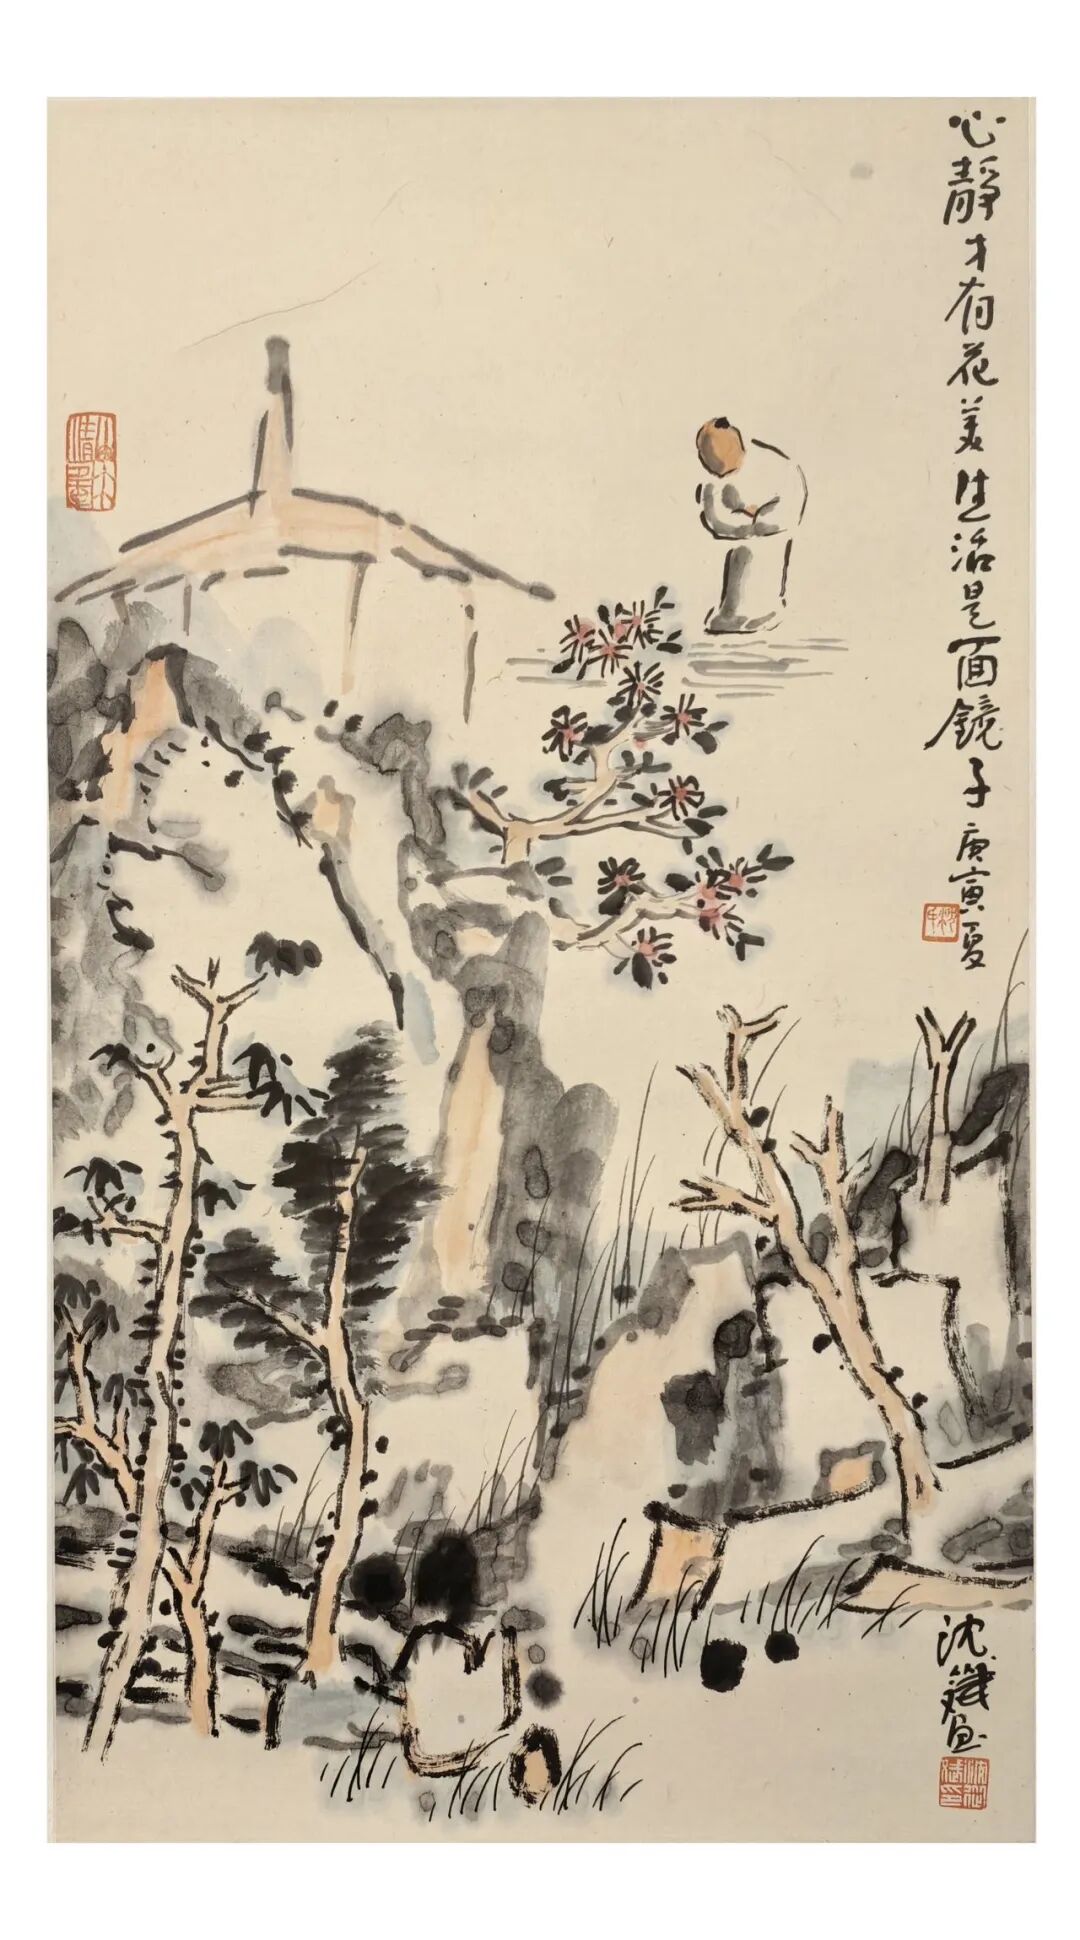 心静才有花美生活是面鏡子 庚寅夏
沈 画